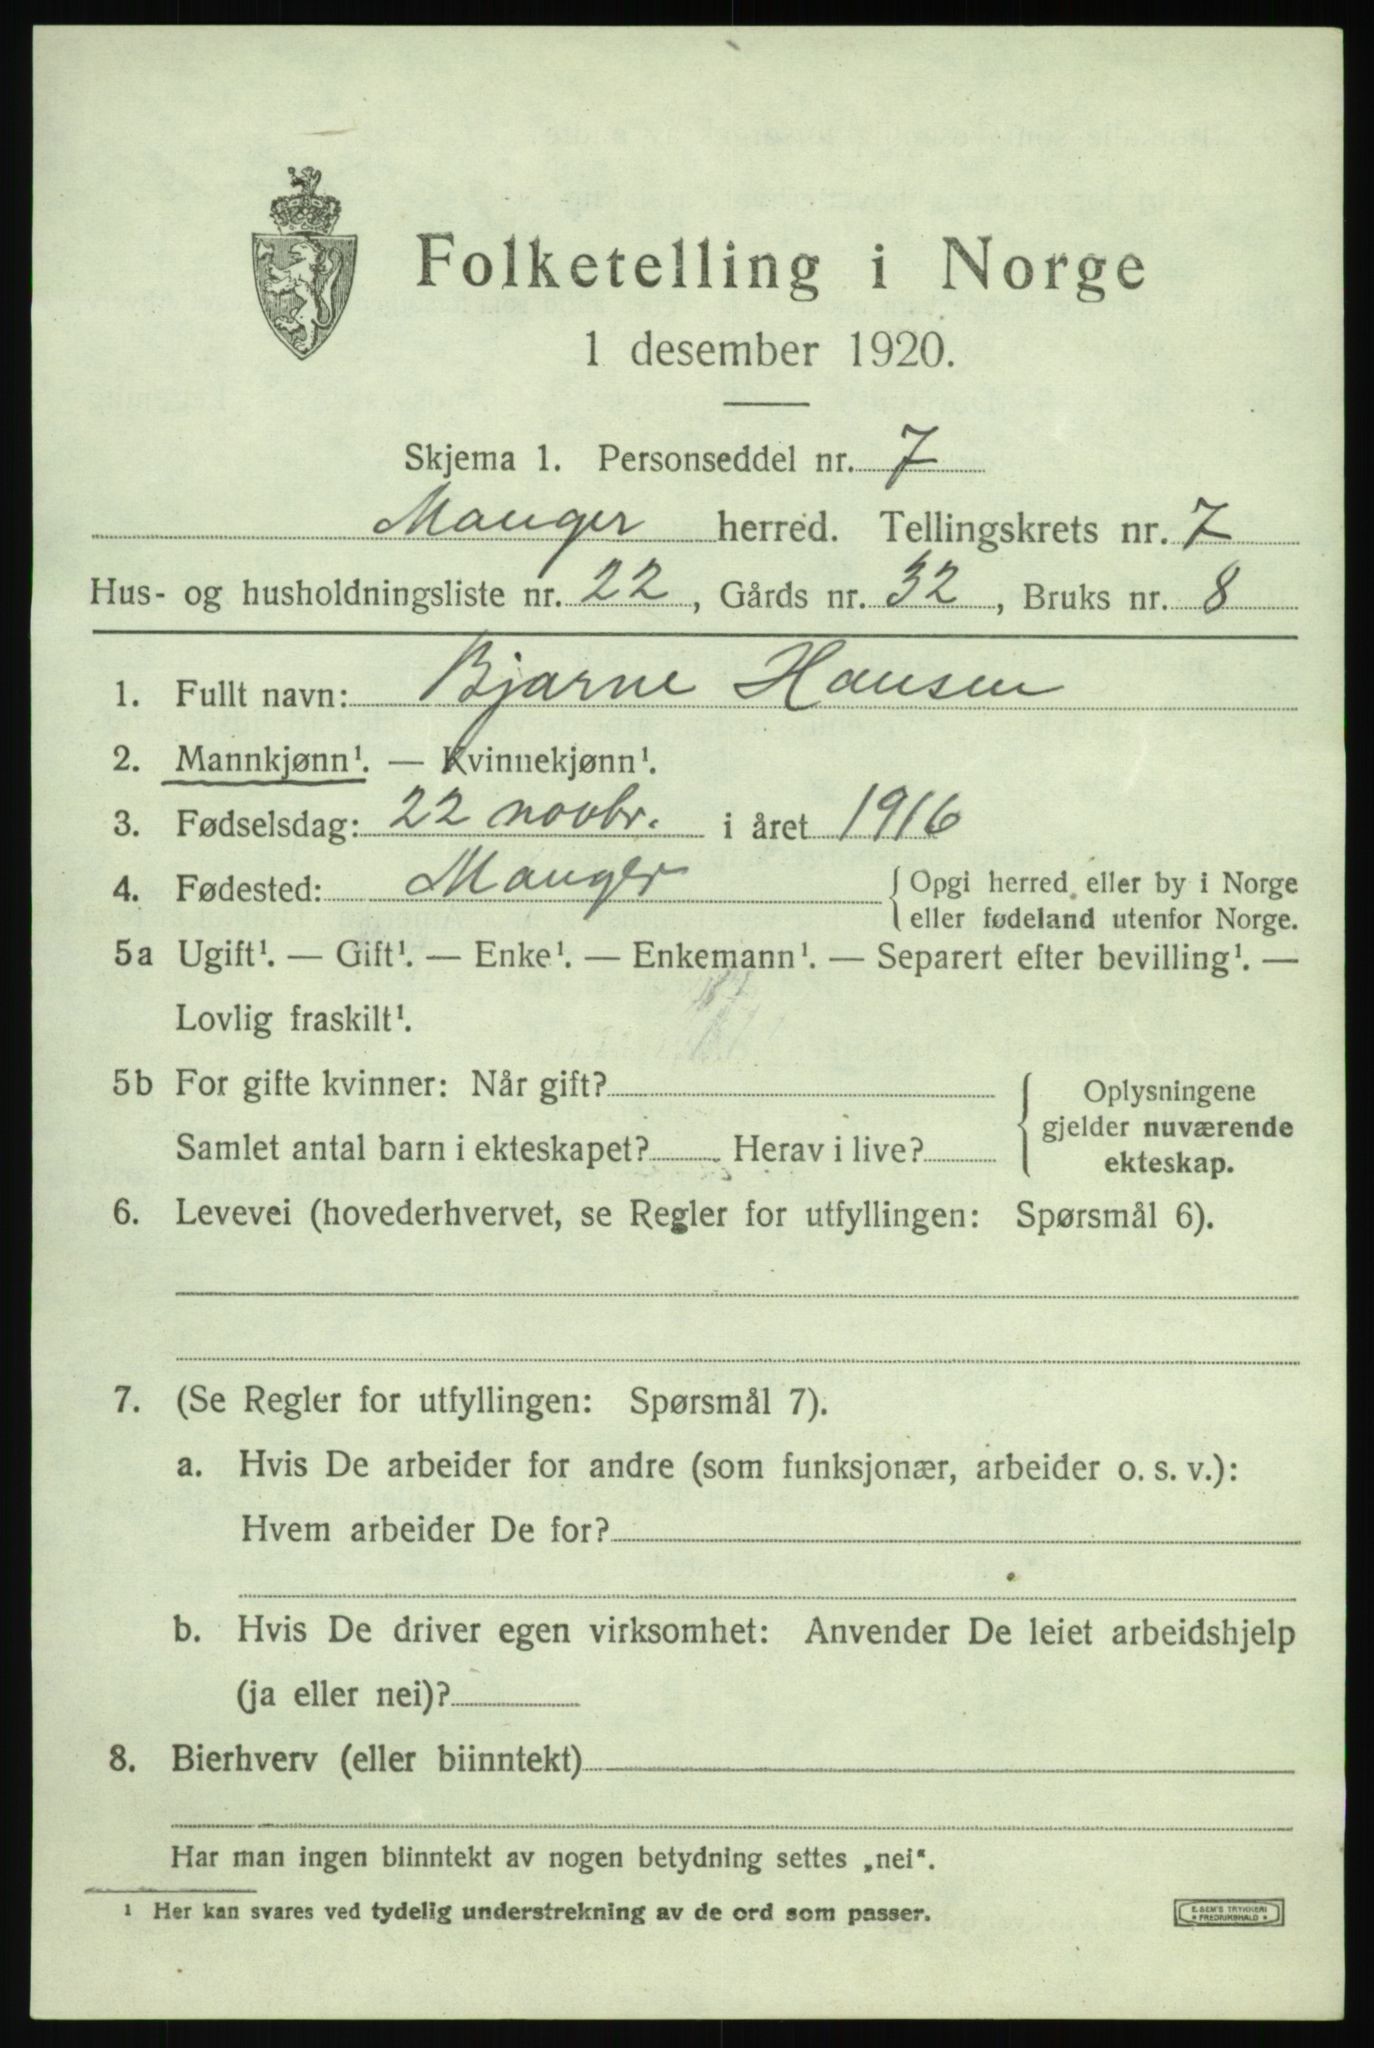 Folketelling i Norge
1 desember 1920.
Skjema 1. Personseddel nr. 7
Manger herred. Tellingskrets nr. 7
Hus- og husholdningsliste nr. 22, Gårds nr. 32, Bruks nr. 8
1. Fullt navn: Bjarne Hansen
2. Mannkjønn¹. — Kvinnekjønn¹.
3. Fødselsdag: 22 novbr. i året 1916
4. Fødested: Manger { Opgi herred eller by i Norge
eller fødeland utenfor Norge.
5a Ugift¹. — Gift¹. — Enke¹. — Enkemann¹. — Separert efter bevilling¹. —
Lovlig fraskilt¹.
5b For gifte kvinner: Når gift? { Oplysningene
gjelder nuværende
Samlet antal barn i ekteskapet? Herav i live?
ekteskap.
6. Levevei (hovederhvervet, se Regler for utfyllingen: Spørsmål 6).
7. (Se Regler for utfyllingen: Spørsmål 7).
a. Hvis De arbeider for andre (som funksjonær, arbeider o. s. v.):
Hvem arbeider De for?
b. Hvis De driver egen virksomhet: Anvender De leiet arbeidshjelp
(ja eller nei)?
8. Bierhverv (eller biinntekt)
Har man ingen biinntekt av nogen betydning settes „nei“.
¹ Her kan svares ved tydelig understrekning av de ord som passer.
E. SEM'S TRYKKERI
FREDRIKSHALD